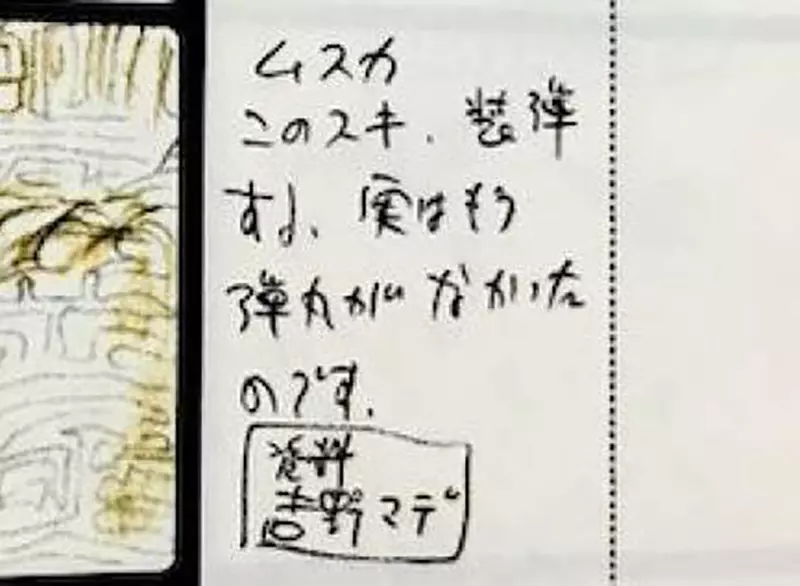 ムスカ
このスキ、装弾
する、実はもう
弾丸がなかった
のです.
資料
吉野マデ